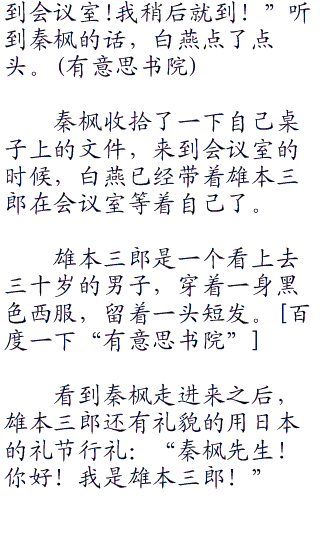 到会议室!我稍后就到！”听
到秦枫的话，白燕点了点
头。(有意思书院)
秦枫收拾了一下自己桌
子上的文件，来到会议室的
时候，白燕已经带着雄本三
郎在会议室等着自己了。
雄本三郎是一个看上去
三十岁的男子，穿着一身黑
色西服，留着一头短发。[百
度一下“有意思书院”]
看到秦枫走进来之后，
雄本三郎还有礼貌的用日本
的礼节行礼：“秦枫先生！
你好！我是雄本三郎！”